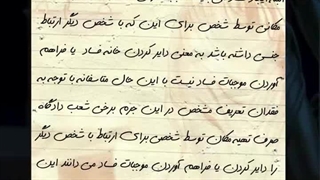 مکانی توسط شخص برای این که با شخص دیگر ارتباط
جنسی داشته باشد به معنی دایر کردن خانه فساد یا فراهم
آوردن موجبات فساد نیست با این حال متاسفانه با توجه به
فقدان تعریف مشخص در این جرم برخی شعب دادگاه
صرف تهیه مکان توسط شخص برای ارتباط با شخص دیگر
را دایر کردن یا فراهم آوردن موجبات فساد می دانند این